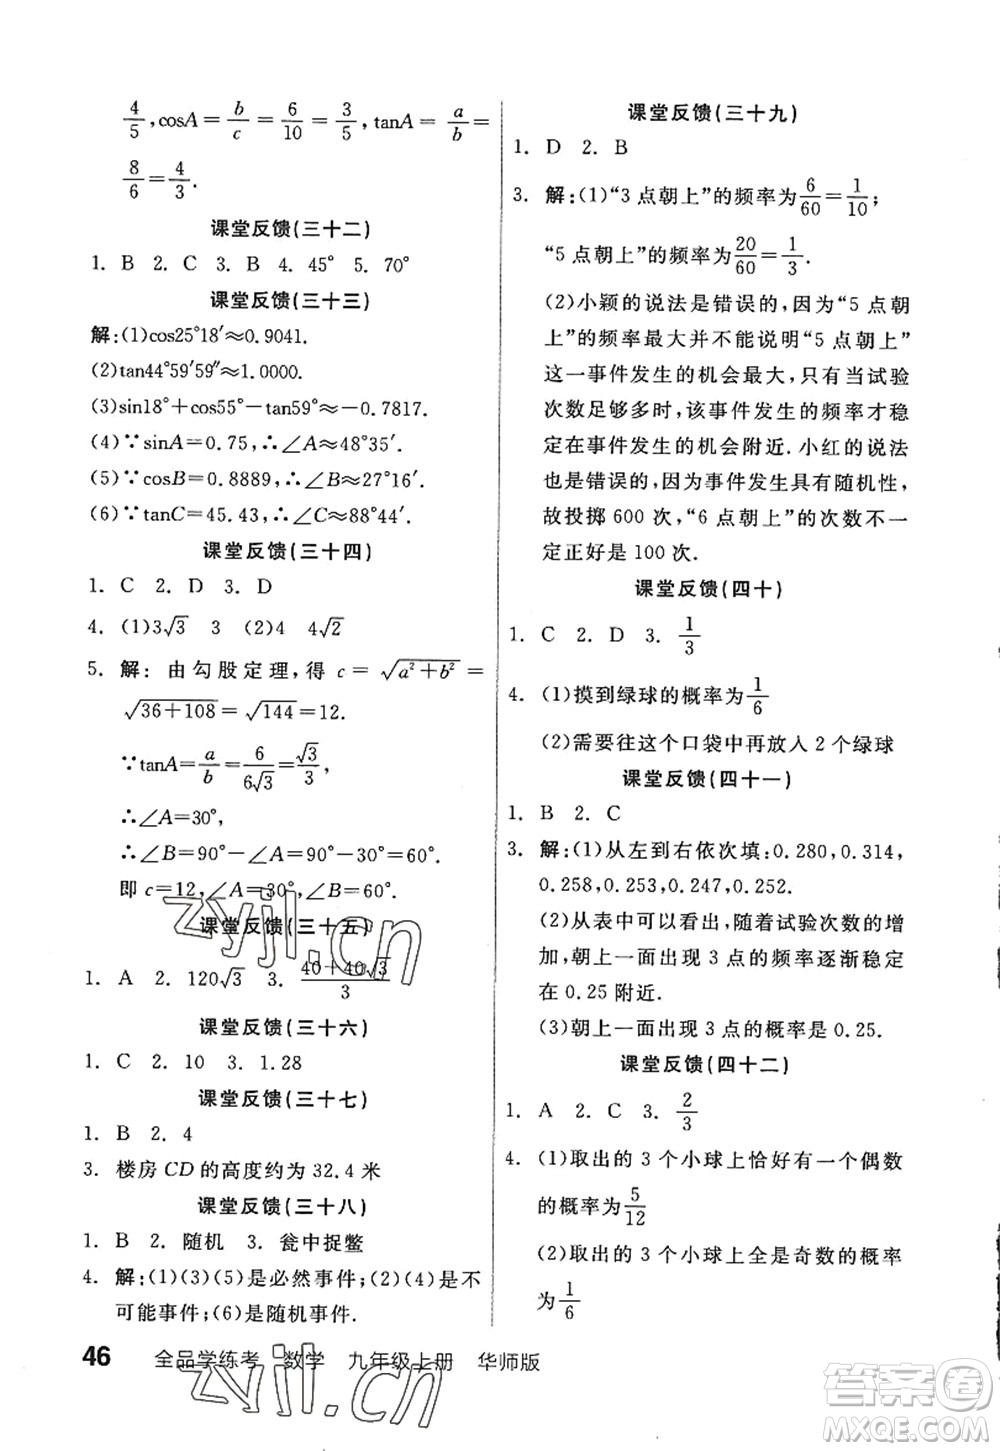 4/5,cosA=b/c=6/10=3/5,tanA=a/b=
8/6=4/3.
课堂反馈(三十二)
1. B 2. C 3. B 4. 45° 5. 70°
课堂反馈(三十三)
解:(1)cos25°18′≈0.9041.
(2)tan44°59′59″≈1.0000.
(3)sin18°+cos55°−tan59°≈−0.7817.
(4)∵sinA=0.75,∴∠A≈48°35′.
(5)∵cosB=0.8889,∴∠B≈27°16′.
(6)∵tanC=45.43,∴∠C≈88°44′.
课堂反馈(三十四)
1. C 2. D 3. D
4. (1)3√3 3 (2)4 4√2
5. 解:由勾股定理,得 c=√(a²+b²)=
√(36+108)=√144=12.
∵tanA=a/b=6/(6√3)=√3/3,
∴∠A=30°,
∴∠B=90°−∠A=90°−30°=60°.
即 c=12,∠A=30°,∠B=60°.
课堂反馈(三十五)
1. A 2. 120√3 3. (40+40√3)/3
课堂反馈(三十六)
1. C 2. 10 3. 1.28
课堂反馈(三十七)
1. B 2. 4
3. 楼房CD的高度约为32.4米
课堂反馈(三十八)
1. B 2. 随机 3. 瓮中捉鳖
4. 解:(1)(3)(5)是必然事件;(2)(4)是不
可能事件;(6)是随机事件.
课堂反馈(三十九)
1. D 2. B
3. 解:(1)“3点朝上”的频率为6/60=1/10;
“5点朝上”的频率为20/60=1/3.
(2)小颖的说法是错误的,因为“5点朝
上”的频率最大并不能说明“5点朝上”
这一事件发生的机会最大,只有当试验
次数足够多时,该事件发生的频率才稳
定在事件发生的机会附近.小红的说法
也是错误的,因为事件发生具有随机性,
故投掷600次,“6点朝上”的次数不一
定正好是100次.
课堂反馈(四十)
1. C 2. D 3. 1/3
4. (1)摸到绿球的概率为1/6
(2)需要往这个口袋中再放入2个绿球
课堂反馈(四十一)
1. B 2. C
3. 解:(1)从左到右依次填:0.280,0.314,
0.258,0.253,0.247,0.252.
(2)从表中可以看出,随着试验次数的增
加,朝上一面出现3点的频率逐渐稳定
在0.25附近.
(3)朝上一面出现3点的概率是0.25.
课堂反馈(四十二)
1. A 2. C 3. 2/3
4. (1)取出的3个小球上恰好有一个偶数
的概率为5/12
(2)取出的3个小球上全是奇数的概率
为1/6
46 全品学练考 数学 九年级上册 华师版
zyjl.cn
zyjl.cn
答案圈
MXQE.COM